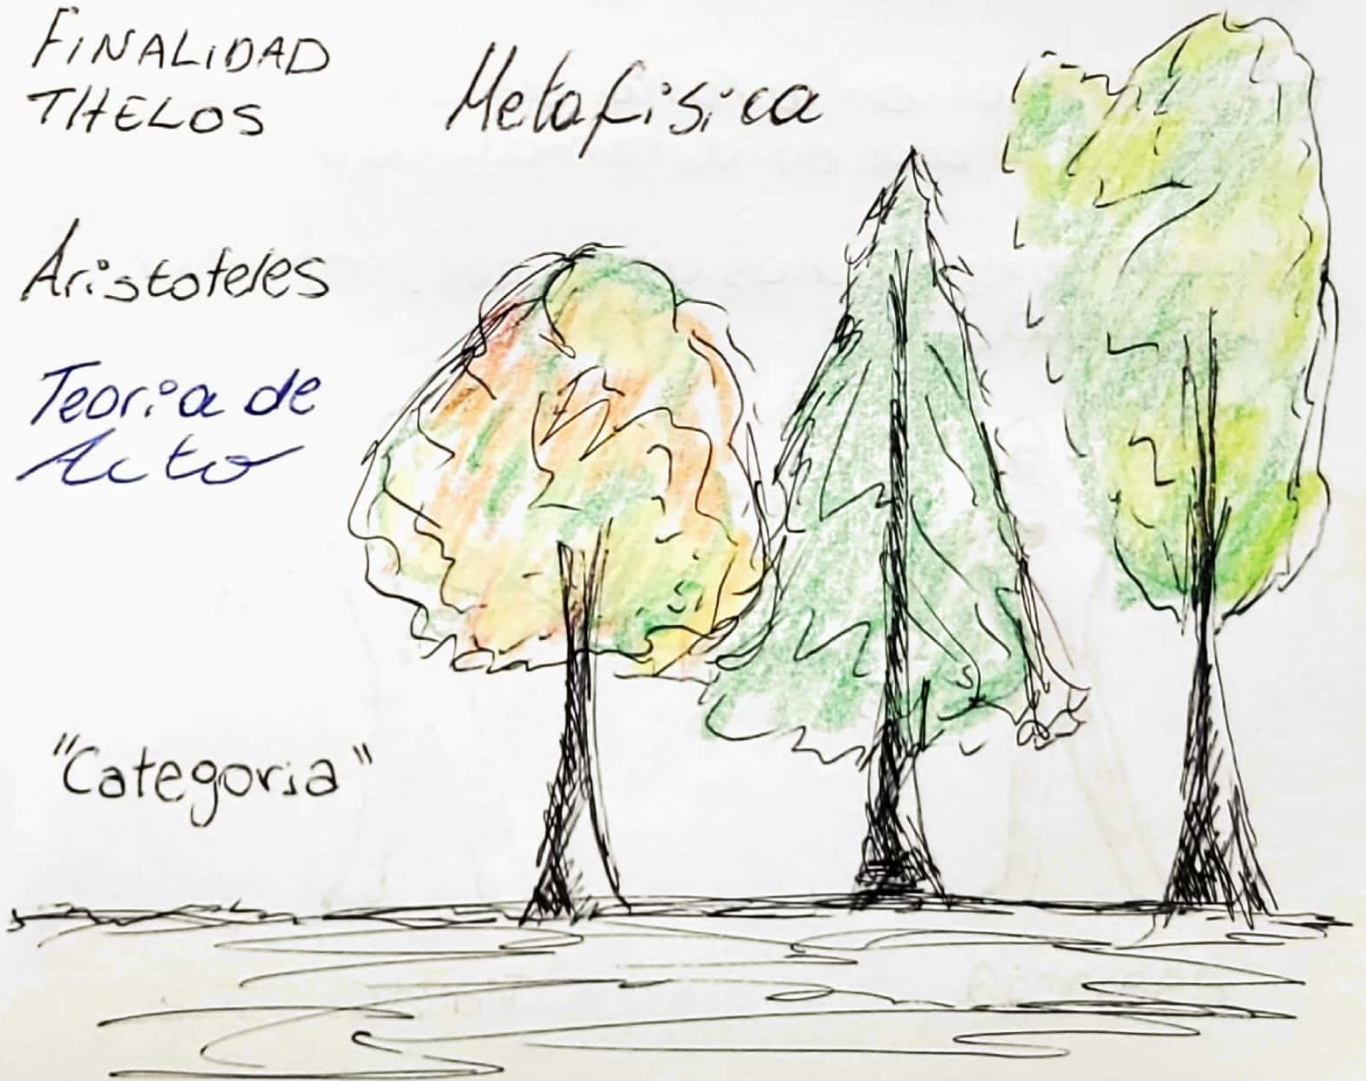 FINALIDAD
THELOS
Metafisica
Aristoteles
Teoria de
Acto
"Categoria"